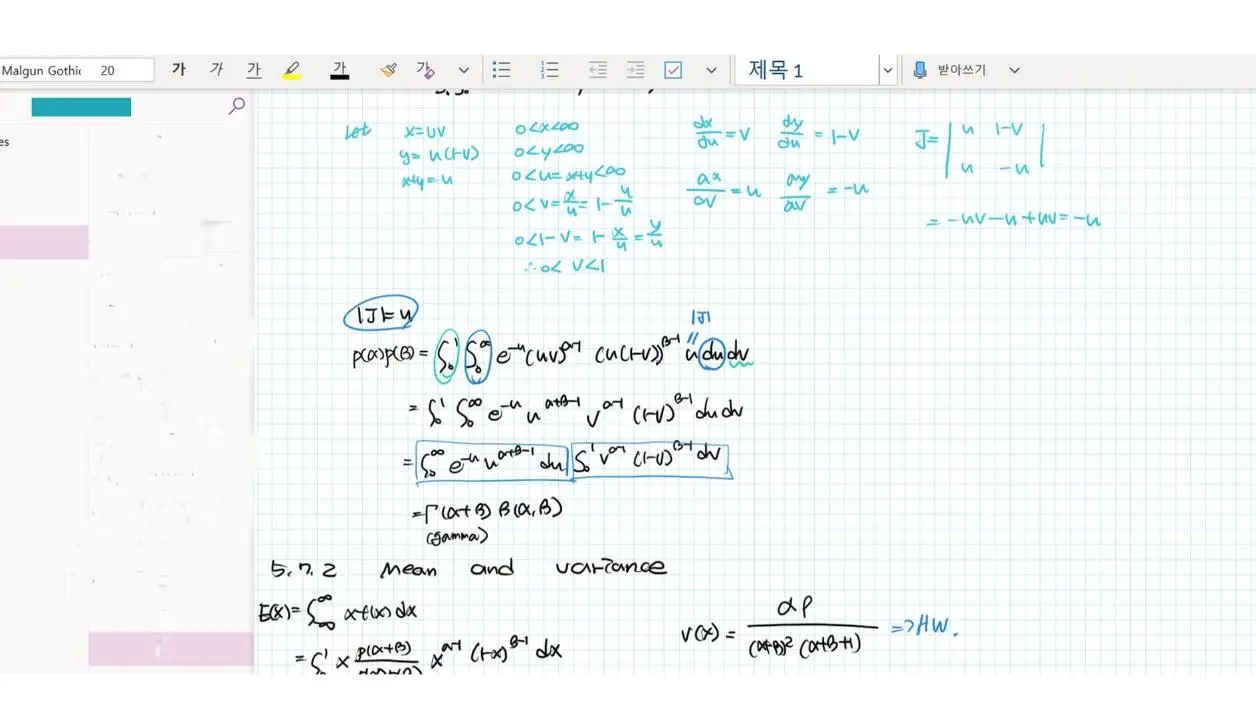 Malgun Gothic 20 가 가 가 가 가 제목 1 받아쓰기
es
let x=uv 0<x<∞ dx/du = v dy/du = 1-v J= | u 1-v |
y= u(1-v) 0<y<∞ | u -u |
x+y=u 0<u=x+y<∞ ax/av = u ay/av = -u
0<v=x/u=1-y/u = -uv-u+uv=-u
0<1-v=1-x/u=y/u
∴0< v<1
|J|=u |J|
Γ(α)Γ(β)= ∫₀¹ ∫₀^∞ e^-u (uv)^α-1 (u(1-v))^β-1 u du dv
= ∫₀¹ ∫₀^∞ e^-u u^α+β-1 v^α-1 (1-v)^β-1 du dv
= ∫₀^∞ e^-u u^α+β-1 du ∫₀¹ v^α-1 (1-v)^β-1 dv
=Γ(α+β) B(α,β)
(gamma)
5.7.2 Mean and variance
E(X)= ∫_-∞^∞ xf(x)dx V(X)= αβ/((α+β)²(α+β+1)) => HW.
= ∫₀¹ x Γ(α+β)/Γ(α)Γ(β) x^α-1 (1-x)^β-1 dx